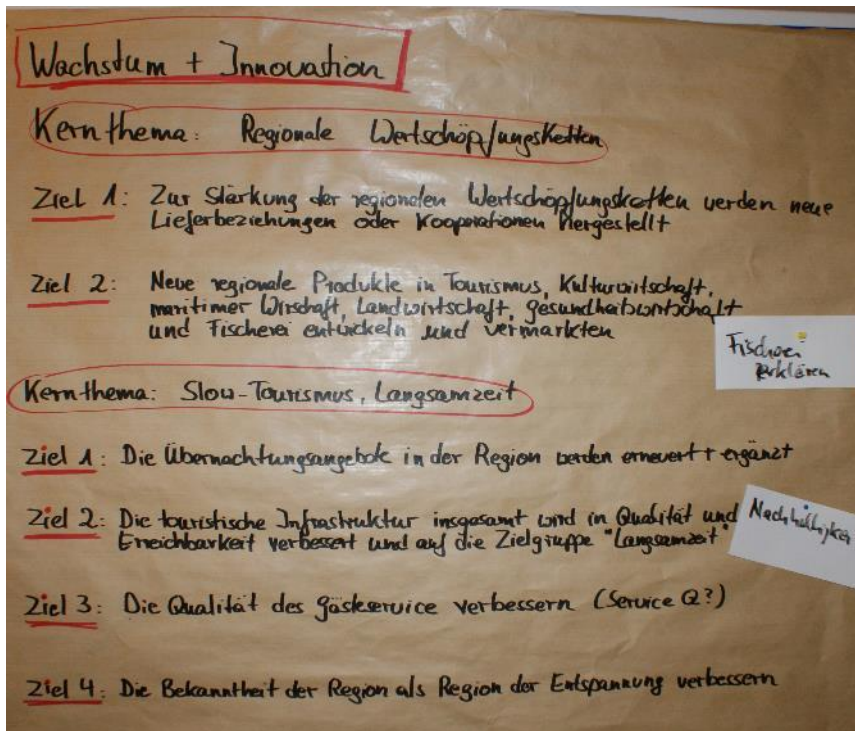 Wachstum + Innovation
Kernthema: Regionale Wertschöpfungsketten
Ziel 1: Zur Stärkung der regionalen Wertschöpfungsketten werden neue
Lieferbeziehungen oder Kooperationen hergestellt
Ziel 2: Neue regionale Produkte in Tourismus, Kulturwirtschaft,
maritimer Wirschaft, Landwirtschaft, Gesundheitswirtschaft
und Fischerei entwickeln und vermarkten
Fischerei
erklären
Kernthema: Slow-Tourismus, Langsamzeit
Ziel 1: Die Übernachtungsangebote in der Region werden erneuert + ergänzt
Ziel 2: Die touristische Infrastruktur insgesamt wird in Qualität und
Erreichbarkeit verbessert und auf die Zielgruppe "Langsamzeit"
Nachhaltigkeit
Ziel 3: Die Qualität des Gästeservice verbessern (Service Q?)
Ziel 4: Die Bekanntheit der Region als Region der Entspannung verbessern